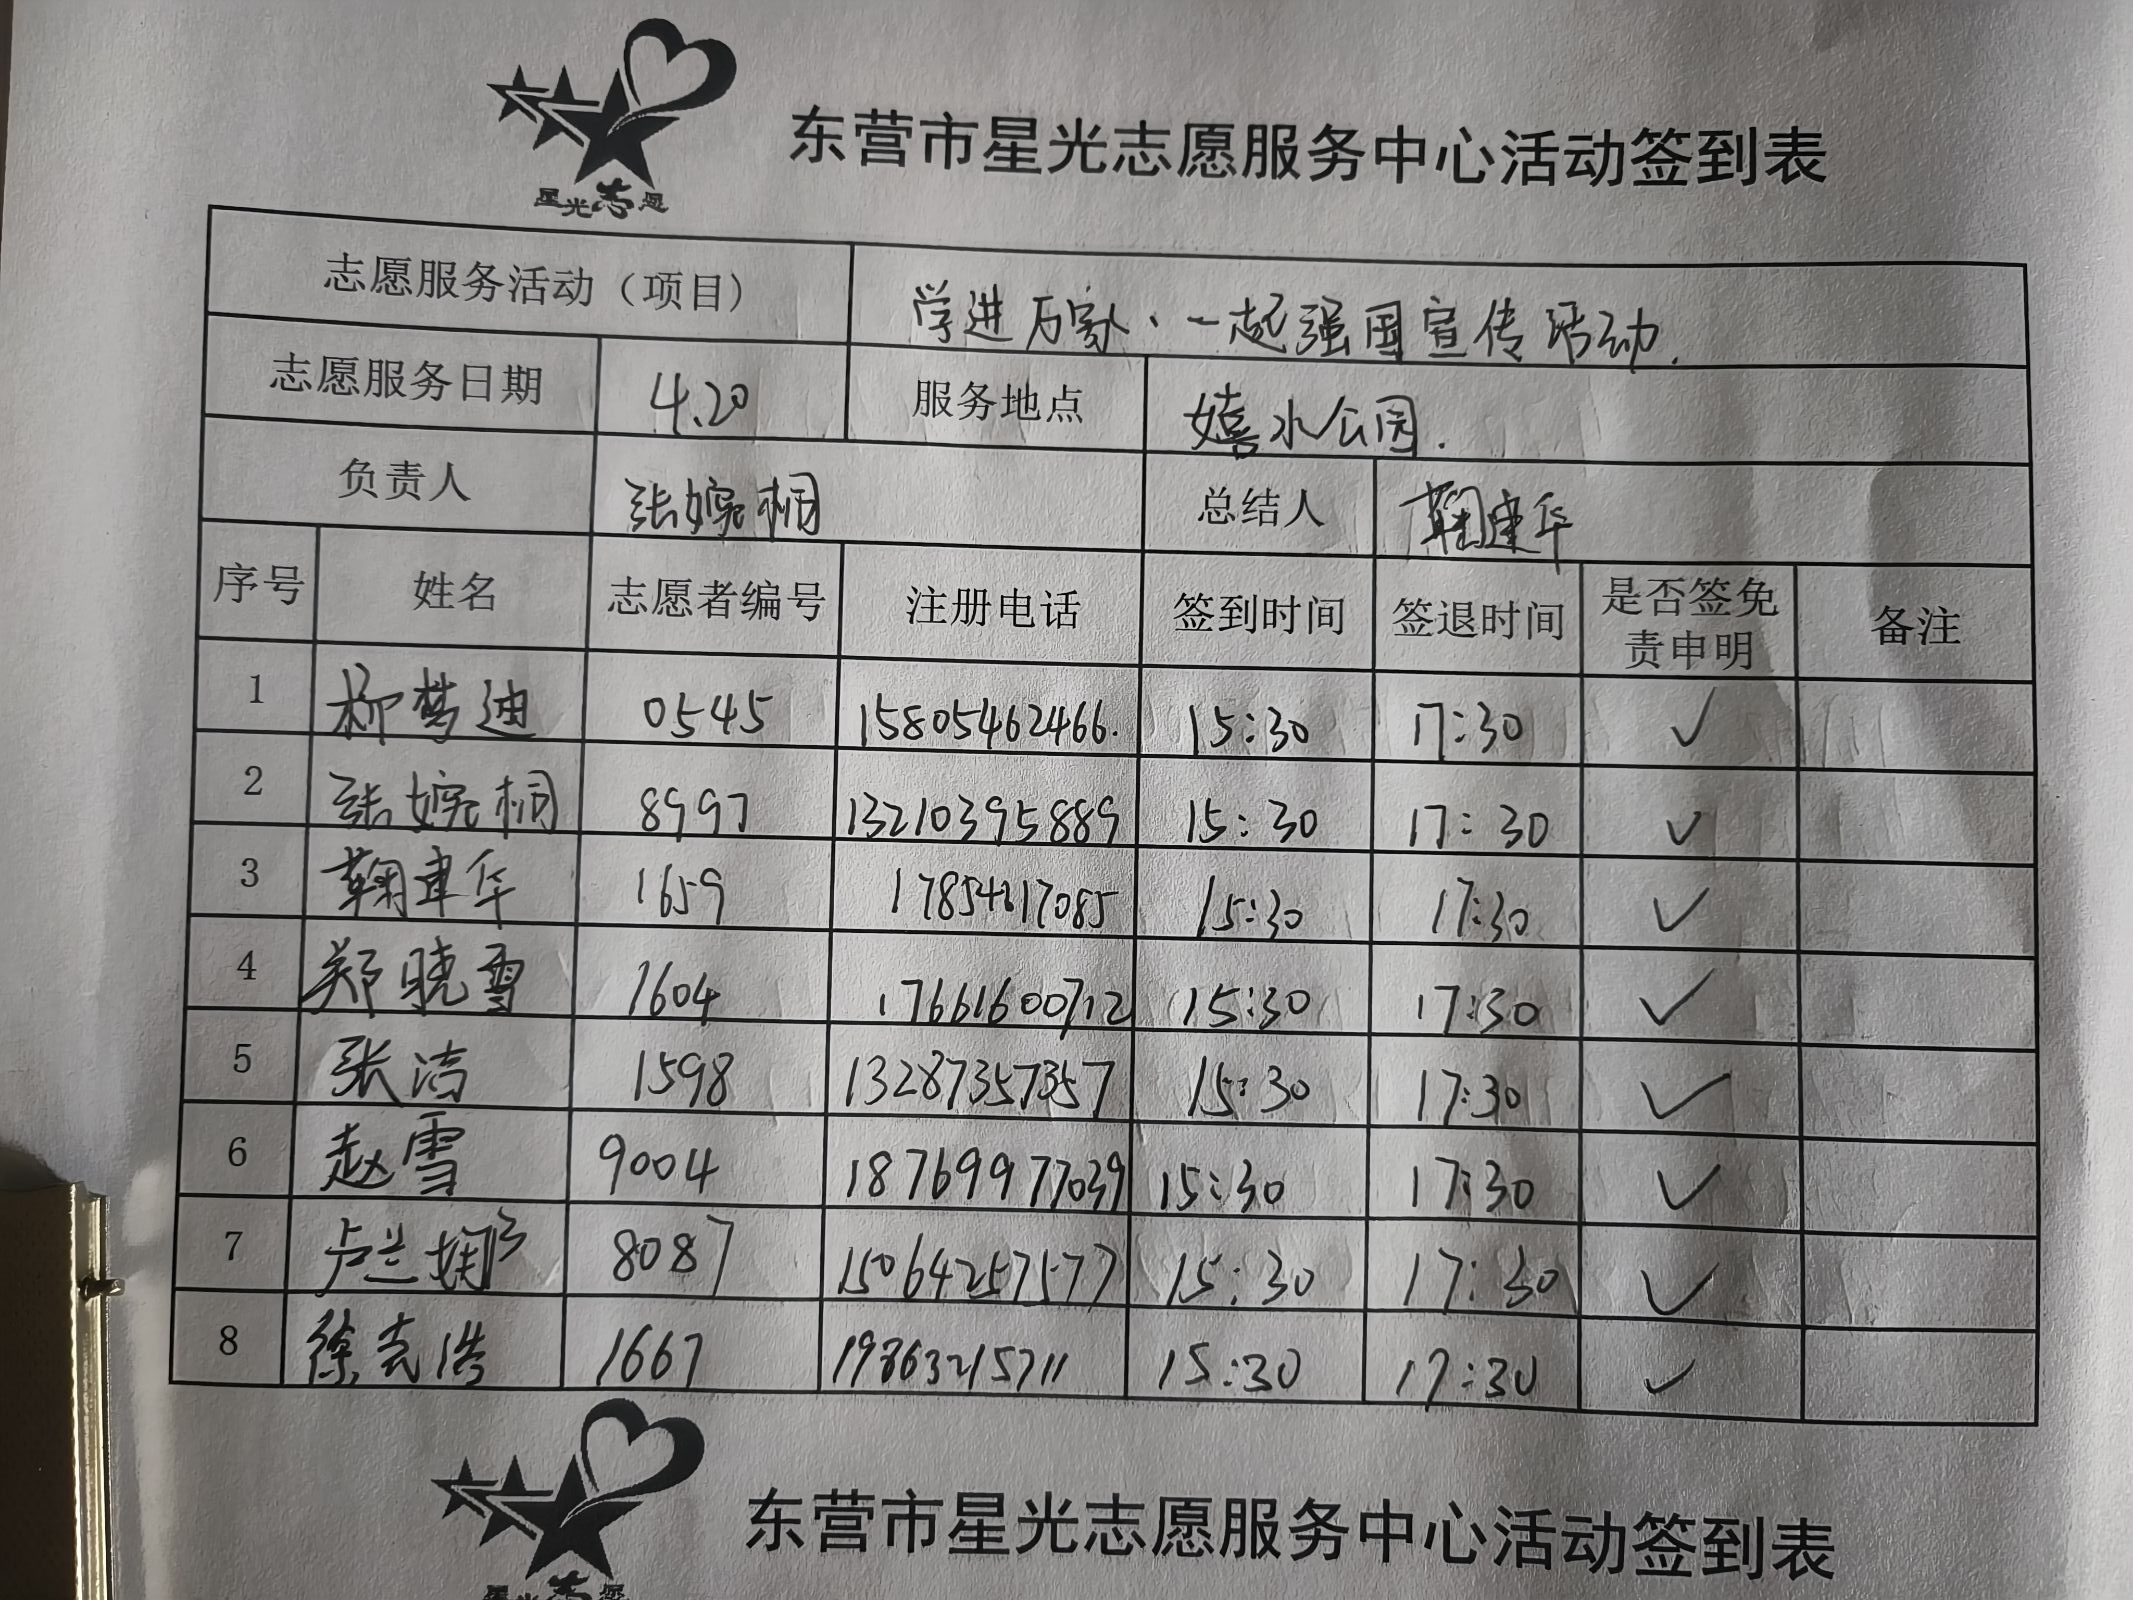 星光志愿
东营市星光志愿服务中心活动签到表
志愿服务活动（项目） 学进万家、一起强国宣传活动.
志愿服务日期 4.20 服务地点 嬉水公园.
负责人 张婉桐 总结人 鞠建华
序号 姓名 志愿者编号 注册电话 签到时间 签退时间 是否签免责申明 备注
1 柳梦迪 0545 15805462466. 15:30 17:30 ✓
2 张婉桐 8997 13210395889 15:30 17:30 ✓
3 鞠建华 1659 15:30 17:30 ✓
4 郑晓雪 1604 17661600712 15:30 17:30 ✓
5 张洁 1598 13287357357 15:30 17:30 ✓
6 赵雪 9004 18769977039 15:30 17:30 ✓
7 卢兰娴 8087 15064257577 15:30 17:30 ✓
8 徐克浩 1667 19863215711 15:30 17:30 ✓
东营市星光志愿服务中心活动签到表
星光志愿